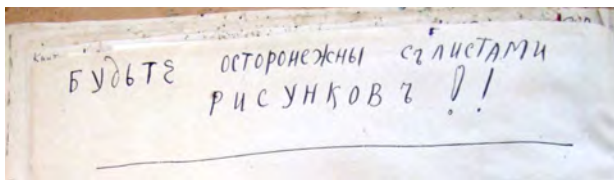 БУДЬТЕ ОСТОРОНЕЖНЫ СЪ ЛИСТАМИ
РИСУНКОВЪ !!